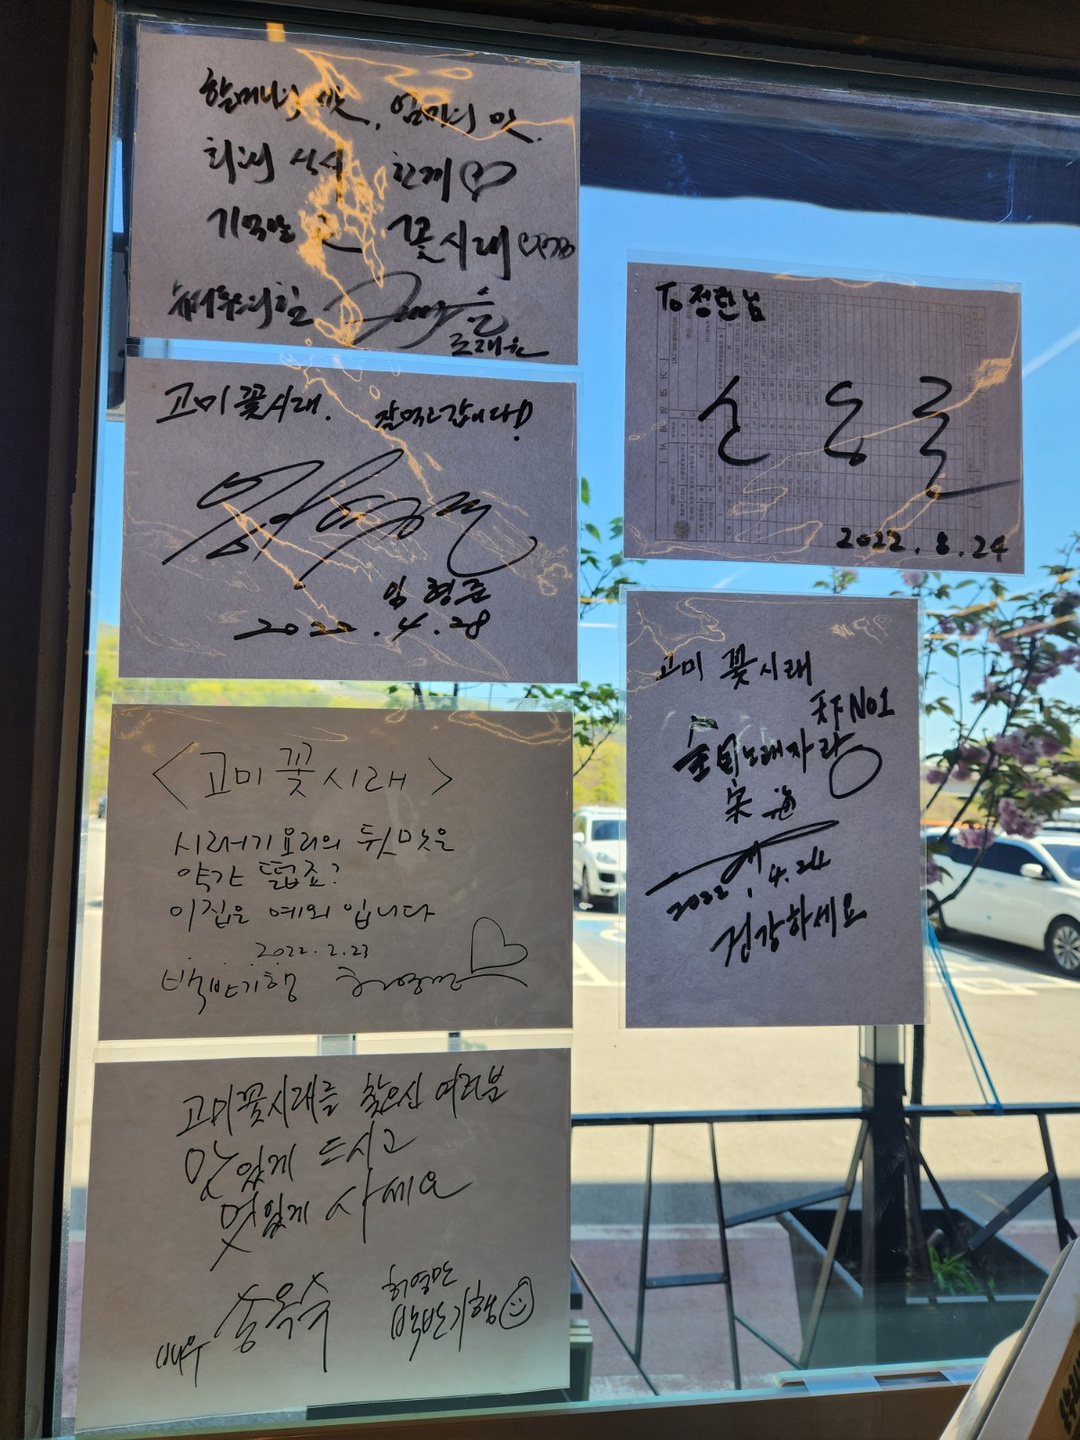 할머니의 맛, 엄마의 맛.
최고의 식사 한끼♡
기억할 꽃시래
고미꽃시래. 잘먹고갑니다!
임형준
2022.4.28
<고미꽃시래>
시래기요리의 뒷맛은
약간 떫죠?
이집은 예외 입니다
2022.2.23
백반기행 허영만
고미꽃시래를 찾으신 여러분
맛있게 드시고
멋있게 사세요
배우 송옥숙 허영만
백반기행
To 정란님
2022.8.24
고미 꽃시래
天下 NO1
全国노래자랑
宋海
2022.4.24
건강하세요